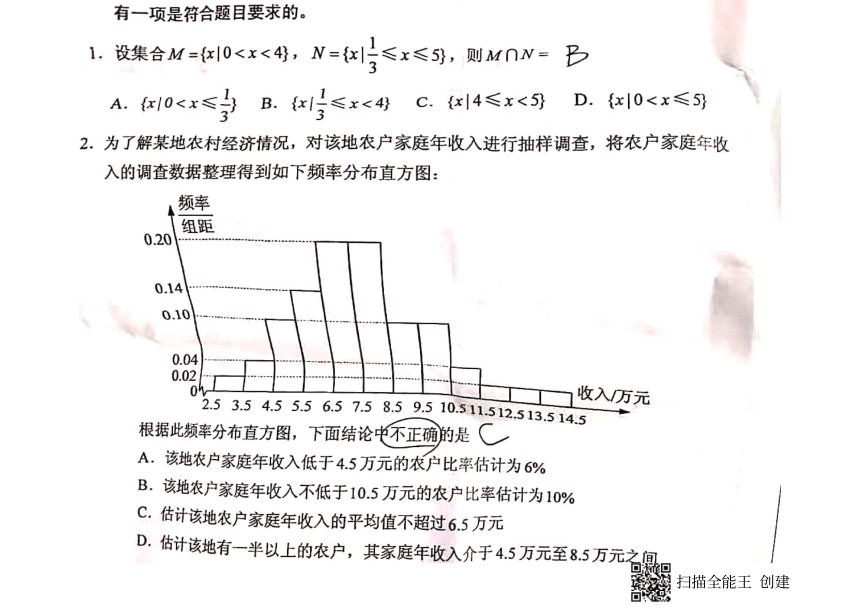 有一项是符合题目要求的。
1. 设集合M={x|0<x<4}，N={x|1/3≤x≤5}，则M∩N= B
A. {x|0<x≤1/3} B. {x|1/3≤x<4} C. {x|4≤x<5} D. {x|0<x≤5}
2. 为了解某地农村经济情况，对该地农户家庭年收入进行抽样调查，将农户家庭年收
入的调查数据整理得到如下频率分布直方图：
频率
组距
0.20
0.14
0.10
0.04
0.02
0
收入/万元
2.5 3.5 4.5 5.5 6.5 7.5 8.5 9.5 10.5 11.5 12.5 13.5 14.5
根据此频率分布直方图，下面结论中不正确的是 C
A. 该地农户家庭年收入低于4.5万元的农户比率估计为6%
B. 该地农户家庭年收入不低于10.5万元的农户比率估计为10%
C. 估计该地农户家庭年收入的平均值不超过6.5万元
D. 估计该地有一半以上的农户，其家庭年收入介于4.5万元至8.5万元之间
扫描全能王 创建